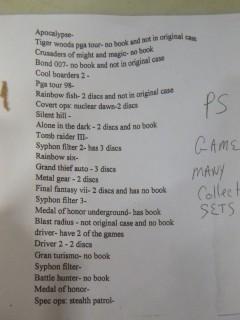 Apocalypse-
Tiger woods pga tour- no book and not in original case
Crusaders of might and magic- no book
Bond 007- no book and not in original case
Cool boarders 2 -
Pga tour 98-
Rainbow fish- 2 discs and not in original case
Covert ops: nuclear dawn-2 discs
Silent hill -
Alone in the dark - 2 discs and no book
Tomb raider III-
Syphon filter 2- has 3 discs
Rainbow six-
Grand thief auto - 3 discs
Metal gear - 2 discs
Final fantasy vii- 2 discs and has no book
Syphon filter 3-
Medal of honor underground- has book
Blast radius - not original case and no book
driver- have 2 of the games
Driver 2 - 2 discs
Gran turismo- no book
Syphon filter-
Battle hunter- no book
Medal of honor-
Spec ops: stealth patrol-
PS
GAME
MANY
Collect
SETS